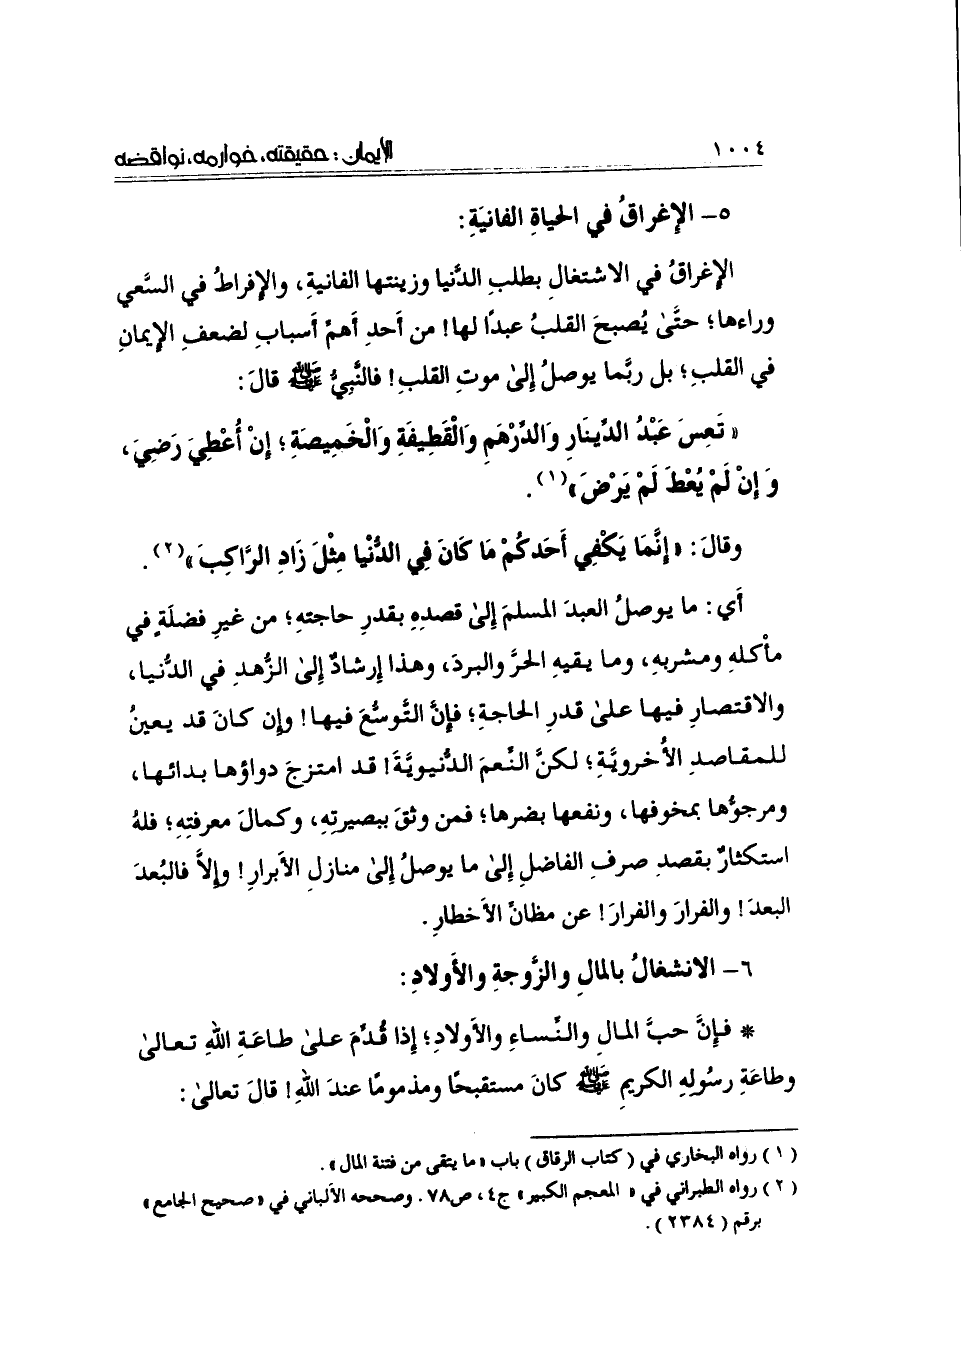 ١٠٠٤
الإيمان: حقيقته، خوارمه، نواقضه
٥- الإغراقُ في الحياةِ الفانيَةِ:
الإغراقُ في الاشتغالِ بطلبِ الدُّنيا وزينتها الفانيةِ، والإفراطُ في السَّعي
وراءها؛ حتَّىٰ يُصبحَ القلبُ عبدًا لها! من أحدِ أهمِّ أسبابِ لضعفِ الإيمانِ
في القلبِ؛ بل ربَّما يوصلُ إلىٰ موتِ القلبِ! فالنَّبِيُّ ﷺ قالَ:
«تَعِسَ عَبْدُ الدِّينَارِ وَالدِّرْهَمِ وَالْقَطِيفَةِ وَالْخَمِيصَةِ؛ إِنْ أُعْطِيَ رَضِيَ،
وَإِنْ لَمْ يُعْطَ لَمْ يَرْضَ»(١).
وقالَ: «إِنَّمَا يَكْفِي أَحَدَكُمْ مَا كَانَ فِي الدُّنْيَا مِثْلَ زَادِ الرَّاكِبَ»(٢).
أي: ما يوصلُ العبدَ المسلمَ إلىٰ قصدِهِ بقدرِ حاجتهِ؛ من غيرِ فضلَةٍ في
مأكلهِ ومشربهِ، وما يقيهِ الحرَّ والبردَ، وهذا إرشادٌ إلىٰ الزُّهدِ في الدُّنيا،
والاقتصارِ فيها علىٰ قدرِ الحاجةِ؛ فإنَّ التَّوسُّعَ فيها! وإن كانَ قد يعينُ
للمقاصدِ الأُخرويَّةِ؛ لكنَّ النِّعمَ الدُّنيويَّةَ! قد امتزجَ دواؤها بدائها،
ومرجوُّها بمخوفها، ونفعها بضرها؛ فمن وثقَ ببصيرتِهِ، وكمالَ معرفتِهِ؛ فلهُ
استكثارٌ بقصدِ صرفِ الفاضلِ إلىٰ ما يوصلُ إلىٰ منازلِ الأبرارِ! وإلاَّ فالبُعدَ
البعدَ! والفرارَ والفرارَ! عن مظانِّ الأخطارِ.
٦- الانشغالُ بالمالِ والزَّوجةِ والأَولادِ:
* فإنَّ حبَّ المالِ والنِّساءِ والأولادِ؛ إذا قُدِّمَ علىٰ طاعَةِ اللهِ تعالىٰ
وطاعَةِ رسُولِهِ الكريمِ ﷺ كانَ مستقبحًا ومذمومًا عندَ اللهِ! قالَ تعالىٰ:
(١) رواه البخاري في (كتاب الرقاق) باب «ما يتقى من فتنة المال».
(٢) رواه الطبراني في «المعجم الكبير» ج٤، ص٧٨. وصححه الألباني في «صحيح الجامع»
برقم (٢٣٨٤).